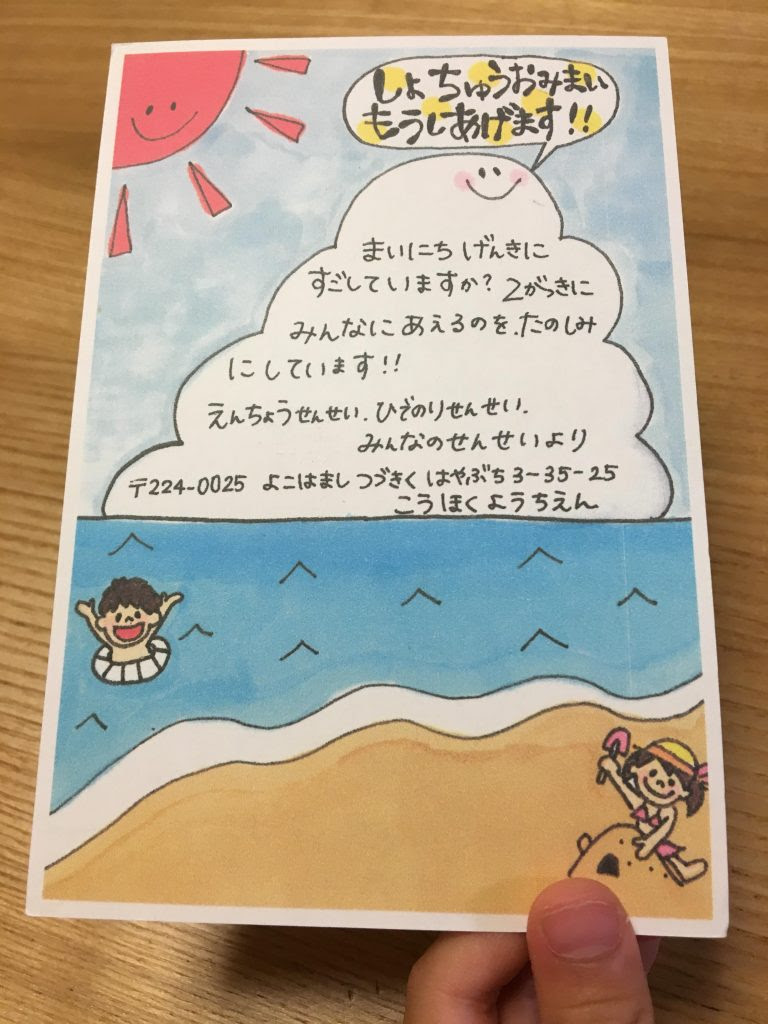 しょちゅうおみまい
もうしあげます!!
まいにち げんきに
すごしていますか? 2がっきに
みんなにあえるのを、たのしみ
にしています!!
えんちょうせんせい、ひでのりせんせい、
みんなのせんせいより
〒224-0025 よこはまし つづきく はやぶち 3-35-25
こうほくようちえん